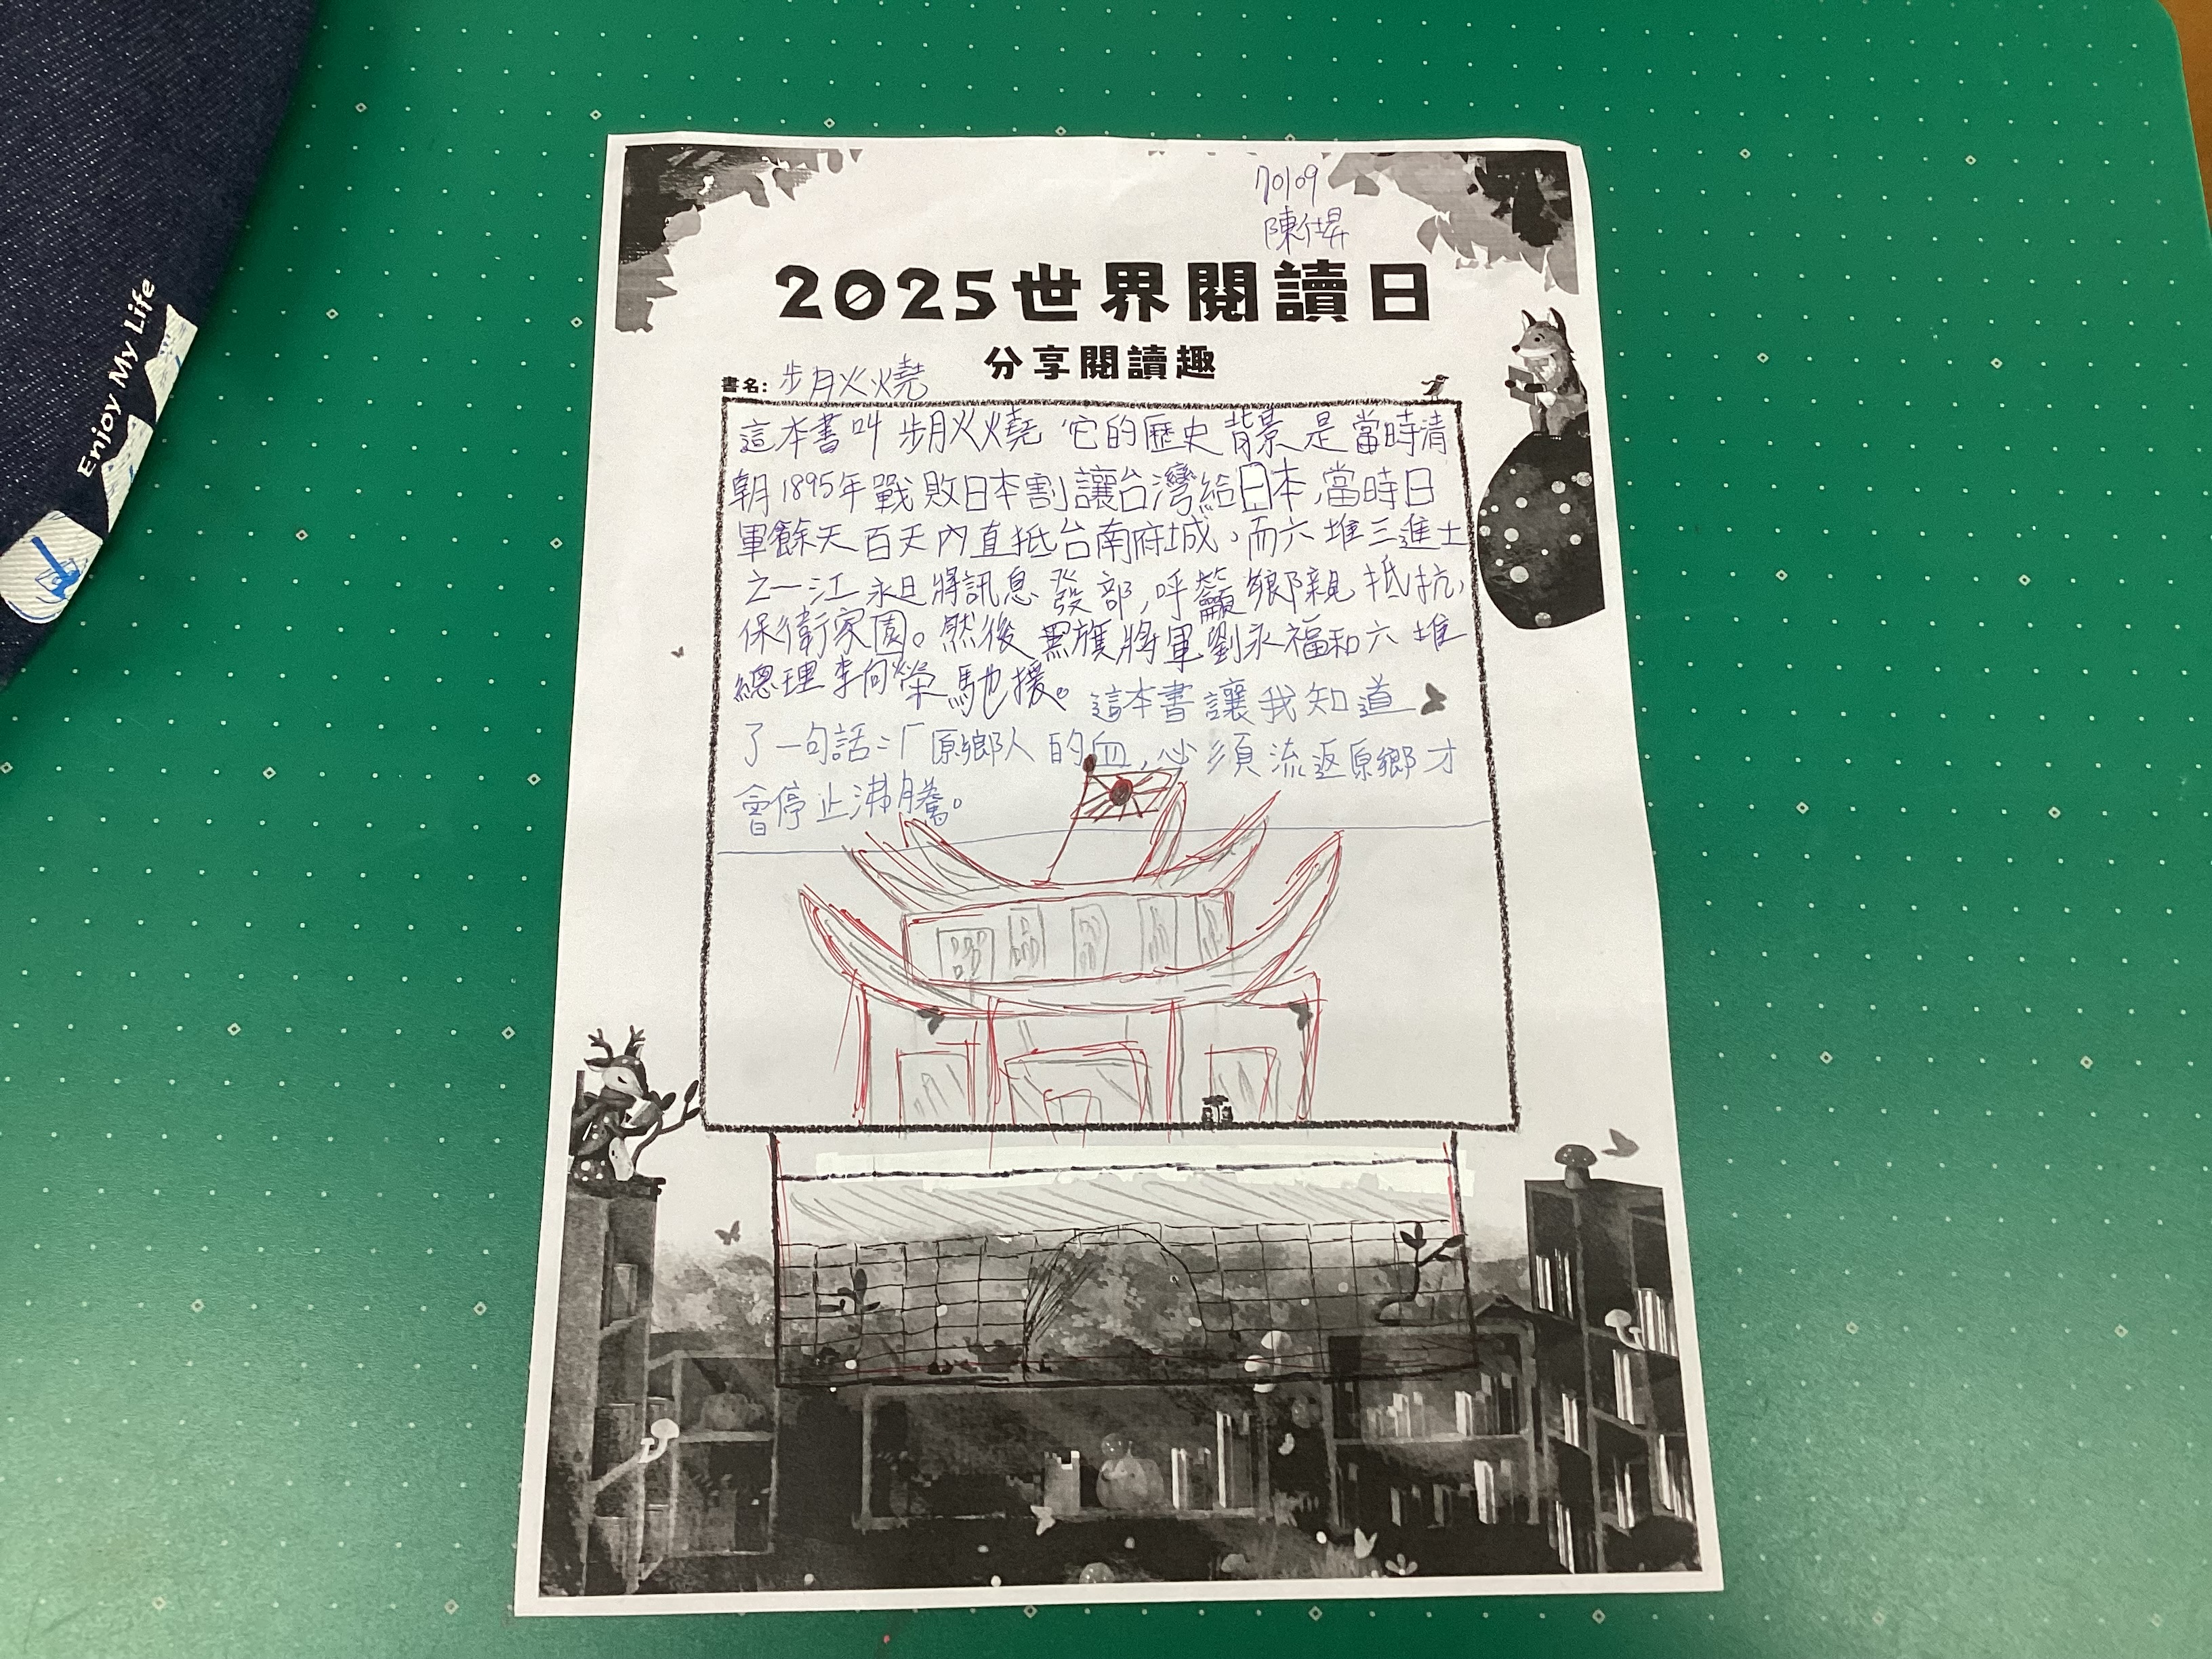 70109
陳仕昇
2025世界閱讀日
分享閱讀趣
書名: 步月火燒
這本書叫步月火燒,它的歷史背景是當時清
朝1895年戰敗日本割讓台灣給日本,當時日
軍餘天百天內直抵台南府城,而六堆三進士
之一江永昌將訊息發部,呼籲鄉親抵抗,
保衛家園。然後黑旗將軍劉永福和六堆
總理李向榮馳援。這本書讓我知道
了一句話:「原鄉人的血,必須流返原鄉才
會停止沸騰。
Enjoy My Life